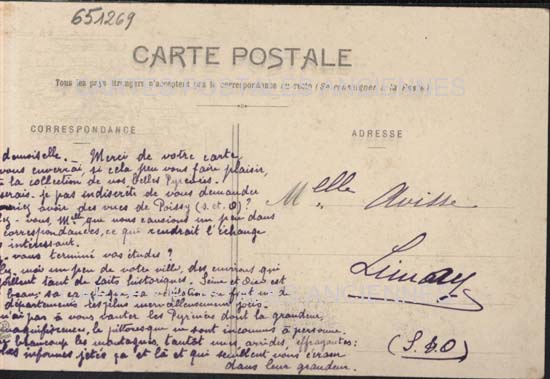 651269
CARTE POSTALE
Tous les pays étrangers n'acceptent pas la correspondance au recto (Se renseigner à la Poste)
CARTES POSTALES ANCIENNES
CORRESPONDANCE
demoiselle. _ Merci de votre carte
vous enverrai, si cela peu vous faire plaisir,
la collection de nos belles Pyrénées.
serais-je pas indiscrète de vous demander
avoir des vues de Poissy (S. et O)?
vous, Melle que nous causions un peu dans
correspondances, ce que rendrait l'échange
intéressant.
vous terminé vos études?
moi un peu de votre ville, des environs qui
tant de faits historiques. Seine et Oise est
beau, sa sa en font un d
départements les plus merveilleusement jolis.
n'ai pas à vous vanter les Pyrénées dont la grandeur,
magnificence, le pittoresque ne sont inconnus à personne.
beaucoup les montagnes tantôt arides, effrayantes:
informes jetés ça et là et qui semblent vous écraser
dans leur grandeur.
ADRESSE
Melle Avisse
Limay
(S. & O)